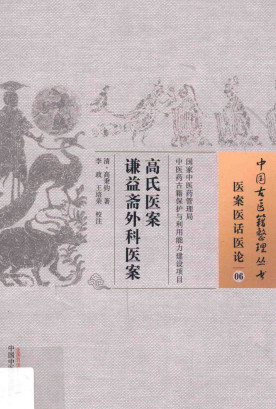 中国古医籍整理丛书
医案医话医论
06
国家中医药管理局
中医药古籍保护与利用能力建设项目
高氏医案
谦益斋外科医案
清·高秉钧 著
李政 王培荣 校注